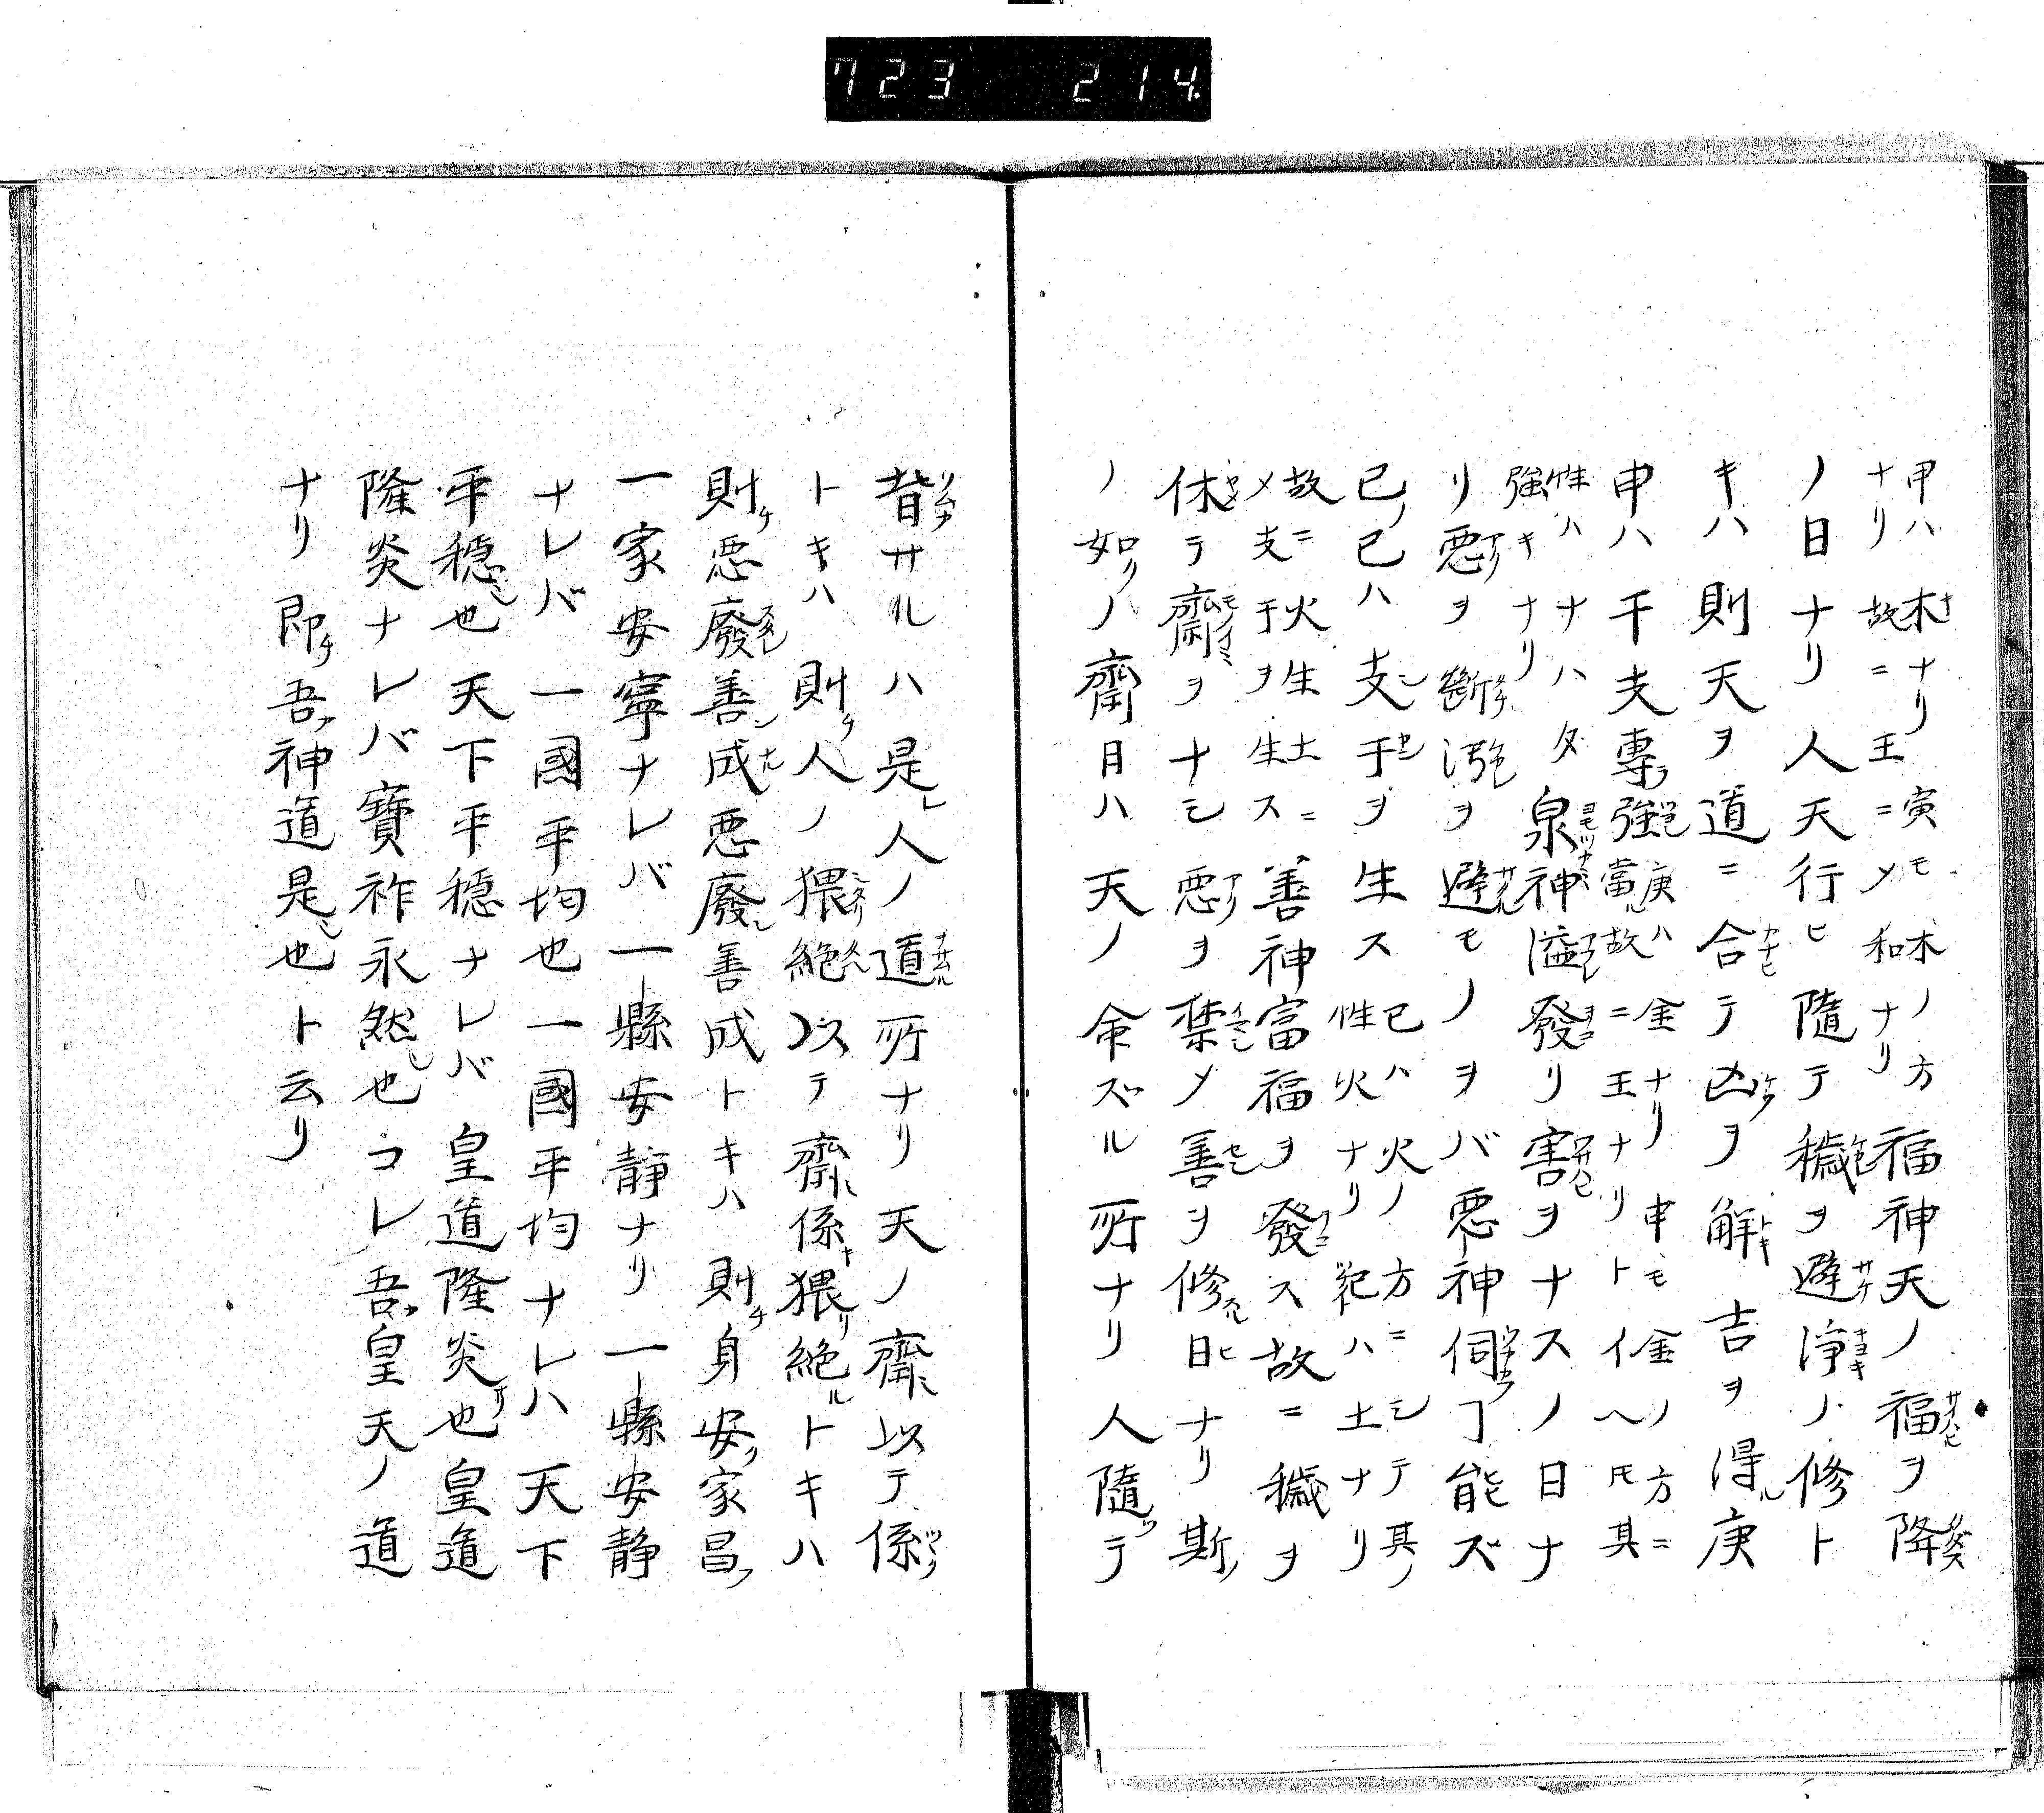 723 214
甲ハ木ナリ寅モ木ノ方
ナリ故ニ王ニメ和ナリ
福神天ノ福ヲ降
ノ日ナリ人天行ヒ隨テ穢ヲ避浄ノ修ト
キハ則天ヲ道ニ合テ凶ヲ解吉ヲ得庚
申ハ干支專強
庚ハ金ナリ申モ金ノ方ニ
當故ニ王ナリトイヘ𪜈其
性ハナハタ
強キナリ
泉神溢發リ害ヲナスノ日ナ
リ惡ヲ斷 ヲ避モノヲバ悪神伺ヿ能ズ
己巳ハ支干ヲ生ス
巳ハ火ノ方ニシテ其
性火ナリ紀ハ土ナリ
故ニ火生土ニ
メ支干ヲ生ス
善神富福ヲ發ス故ニ穢ヲ
休テ齋ヲナシ惡ヲ禁メ善ヲ修日ナリ斯
ノ如ノ齋月ハ天ノ命ズル所ナリ人隨テ
背サルハ是人ノ道所ナリ天ノ齋以テ係
トキハ則人ノ猥絶以テ齋係猥絶トキハ
則悪廢善成悪廢善成トキハ則身安家昌
一家安寧ナレバ一縣安静ナリ一縣安静
ナレバ一國平均也一國平均ナレハ天下
平穏也天下平穏ナレバ皇道隆炎也皇道
隆炎ナレバ寶祚永然也コレ吾皇天ノ道
ナリ即吾神道是也ト云リ